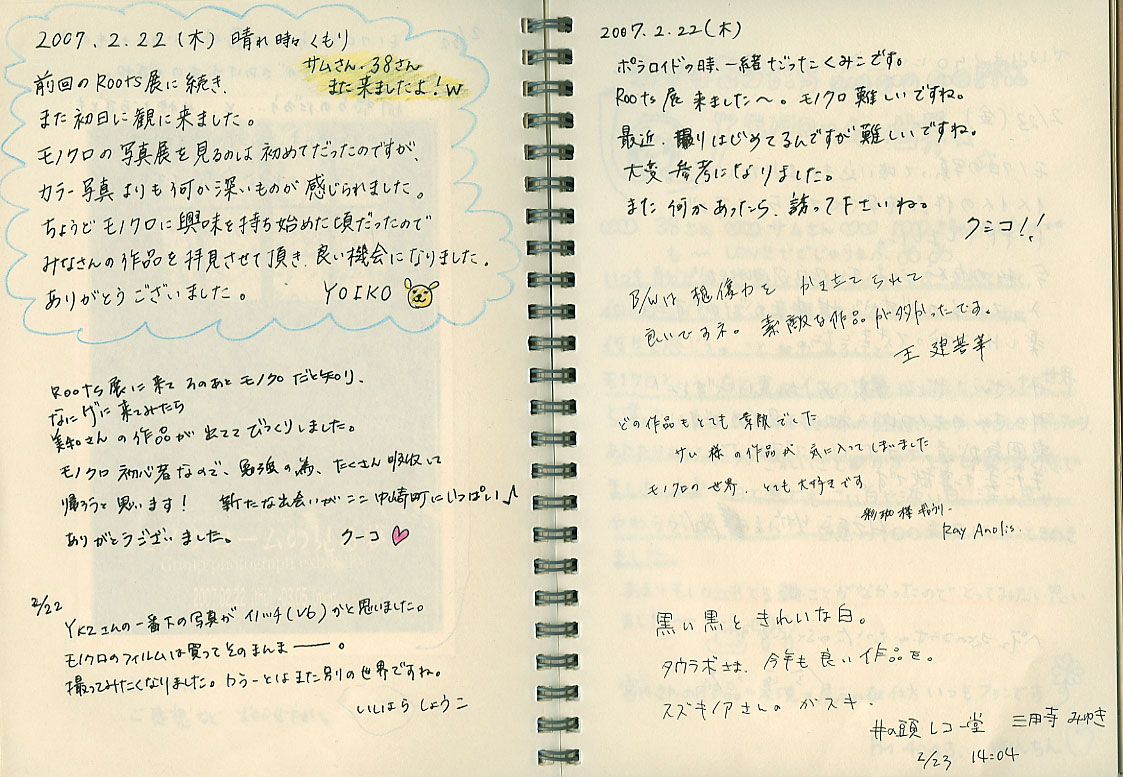 2007.2.22(木) 晴れ時々くもり
サムさん.38さん
また来ましたよ!w
前回のRoots展に続き、
また初日に観に来ました。
モノクロの写真展を見るのは初めてだったのですが、
カラー写真よりも何か深いものが感じられました。
ちょうどモノクロに興味を持ち始めた頃だったので
みなさんの作品を拝見させて頂き、良い機会になりました。
ありがとうございました。 YOIKO
Roots展に来て そのあとモノクロだと知り、
なにげに来てみたら
さんの作品が出ててびっくりしました。
モノクロ初心者なので、勉強の為、たくさん吸収して
帰ろうと思います! 新たな出会いがここ中崎町にいっぱい♪
ありがとうございました。 クーコ
2/22
YKZさんの一番下の写真がイノッチ(V6)かと思いました。
モノクロのフィルムは買ってそのまんまー。
撮ってみたくなりました。カラーとはまた別の世界ですね。
いしはらしょうこ
2007.2.22(木)
ポラロイドの時、一緒だったくみこです。
Roots展来ました〜。モノクロ難しいですね。
最近、撮りはじめてるんですが難しいですね。
大変参考になりました。
また何かあったら、誘って下さいね。
クミコ!!
B/Wは想像力をかき立てられて
良いですネ。素敵な作品が多かったです。
王
どの作品もとても素敵でした
けい様の作品が気に入ってしまいました
モノクロの世界、とても大好きです
Ray Anolis.
黒い黒ときれいな白。
タウラボさま、今年も良い作品を。
スズキノアさんのがスキ.
井の頭レコード堂 三用寺みゆき
2/23 14:04